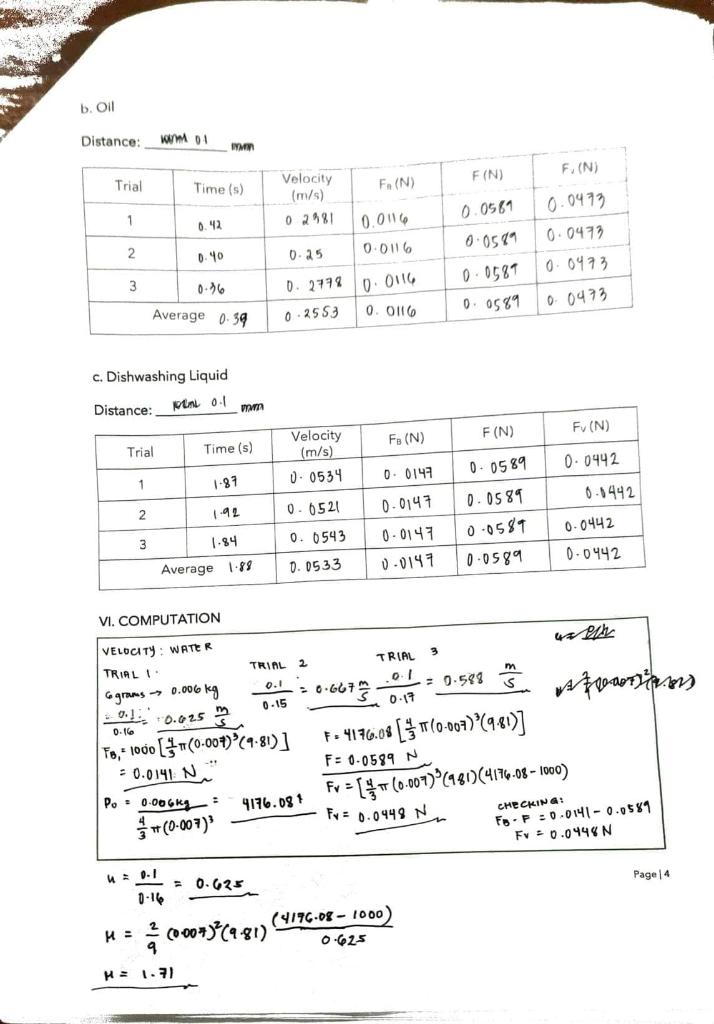 b. Oil
Distance: 0.1 mm
Trial Time (s) Velocity (m/s) FB (N) F (N) Fv (N)
1 0.42 0.2381 0.0116 0.0589 0.0473
2 0.40 0.25 0.0116 0.0589 0.0473
3 0.36 0.2778 0.0116 0.0589 0.0473
Average 0.39 0.2553 0.0116 0.0589 0.0473
c. Dishwashing Liquid
Distance: 0.1 mm
Trial Time (s) Velocity (m/s) FB (N) F (N) Fv (N)
1 1.87 0.0534 0.0147 0.0589 0.0442
2 1.92 0.0521 0.0147 0.0589 0.0442
3 1.84 0.0543 0.0147 0.0589 0.0442
Average 1.88 0.0533 0.0147 0.0589 0.0442
VI. COMPUTATION
VELOCITY: WATER
TRIAL 1: TRIAL 2 TRIAL 3
6 grams → 0.006 kg
0.1/0.16 = 0.625 m/s 0.1/0.15 = 0.667 m/s 0.1/0.17 = 0.588 m/s
FB, = 1000 [4/3 π(0.007)³(9.81)]
= 0.0141 N
F = 4176.08 [4/3 π(0.007)³(9.81)]
F = 0.0589 N
Po = 0.006kg / 4/3 π(0.007)³ = 4176.081
Fv = [4/3 π(0.007)³(9.81)(4176.08-1000)
Fv = 0.0448 N
CHECKING:
FB - F = 0.0141 - 0.0589
Fv = 0.0448N
Page | 4
u = 0.1/0.16 = 0.625
M = 2/9 (0.007)²(9.81) (4176.08 - 1000)/0.625
M = 1.71